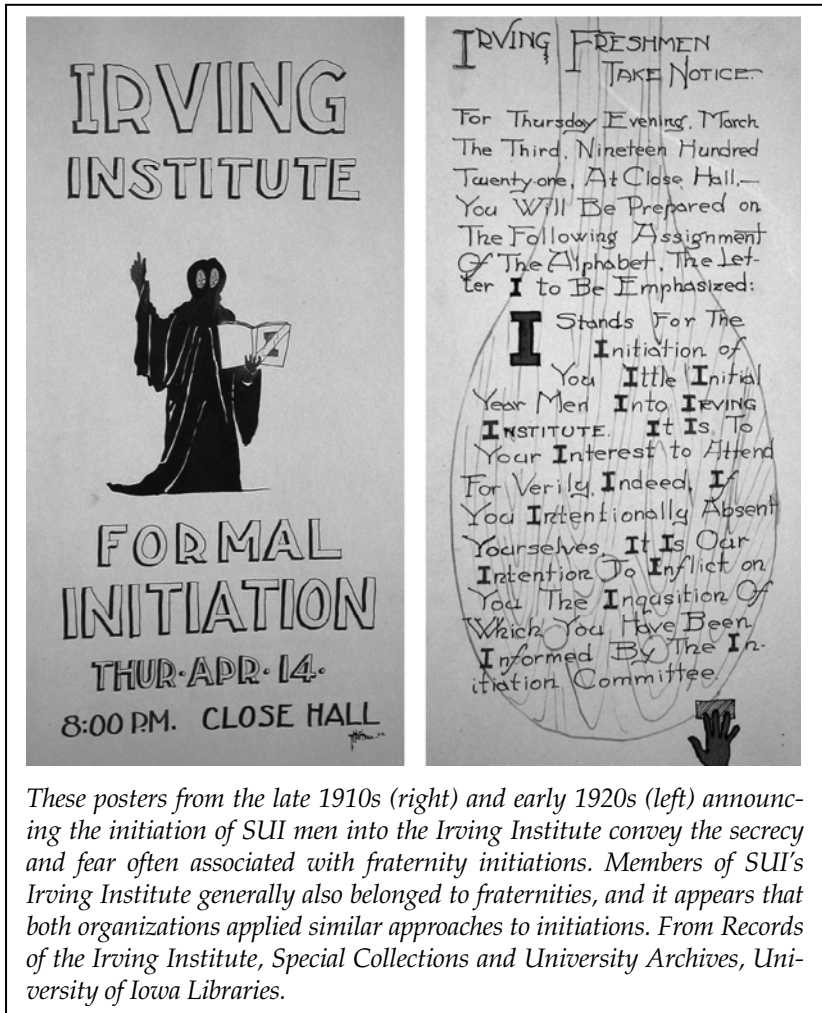 IRVING
INSTITUTE
FORMAL
INITIATION
THUR·APR·14·
8:00 P.M. CLOSE HALL
IRVING FRESHMEN
TAKE NOTICE-
For Thursday Evening, March
The Third, Nineteen Hundred
Twenty-one, At Close Hall,—
You Will Be Prepared on
The Following Assignment
Of The Alphabet, The Let-
ter I to Be Emphasized:
I Stands For The
Initiation of
You Ittle Initial
Year Men Into IRVING
INSTITUTE. It Is To
Your Interest to Attend
For Verily, Indeed, If
You Intentionally Absent
Yourselves, It Is Our
Intention To Inflict on
You The Inqusition Of
Which You Have Been
Informed By The In-
itiation Committee.
These posters from the late 1910s (right) and early 1920s (left) announc-
ing the initiation of SUI men into the Irving Institute convey the secrecy
and fear often associated with fraternity initiations. Members of SUI's
Irving Institute generally also belonged to fraternities, and it appears that
both organizations applied similar approaches to initiations. From Records
of the Irving Institute, Special Collections and University Archives, Uni-
versity of Iowa Libraries.